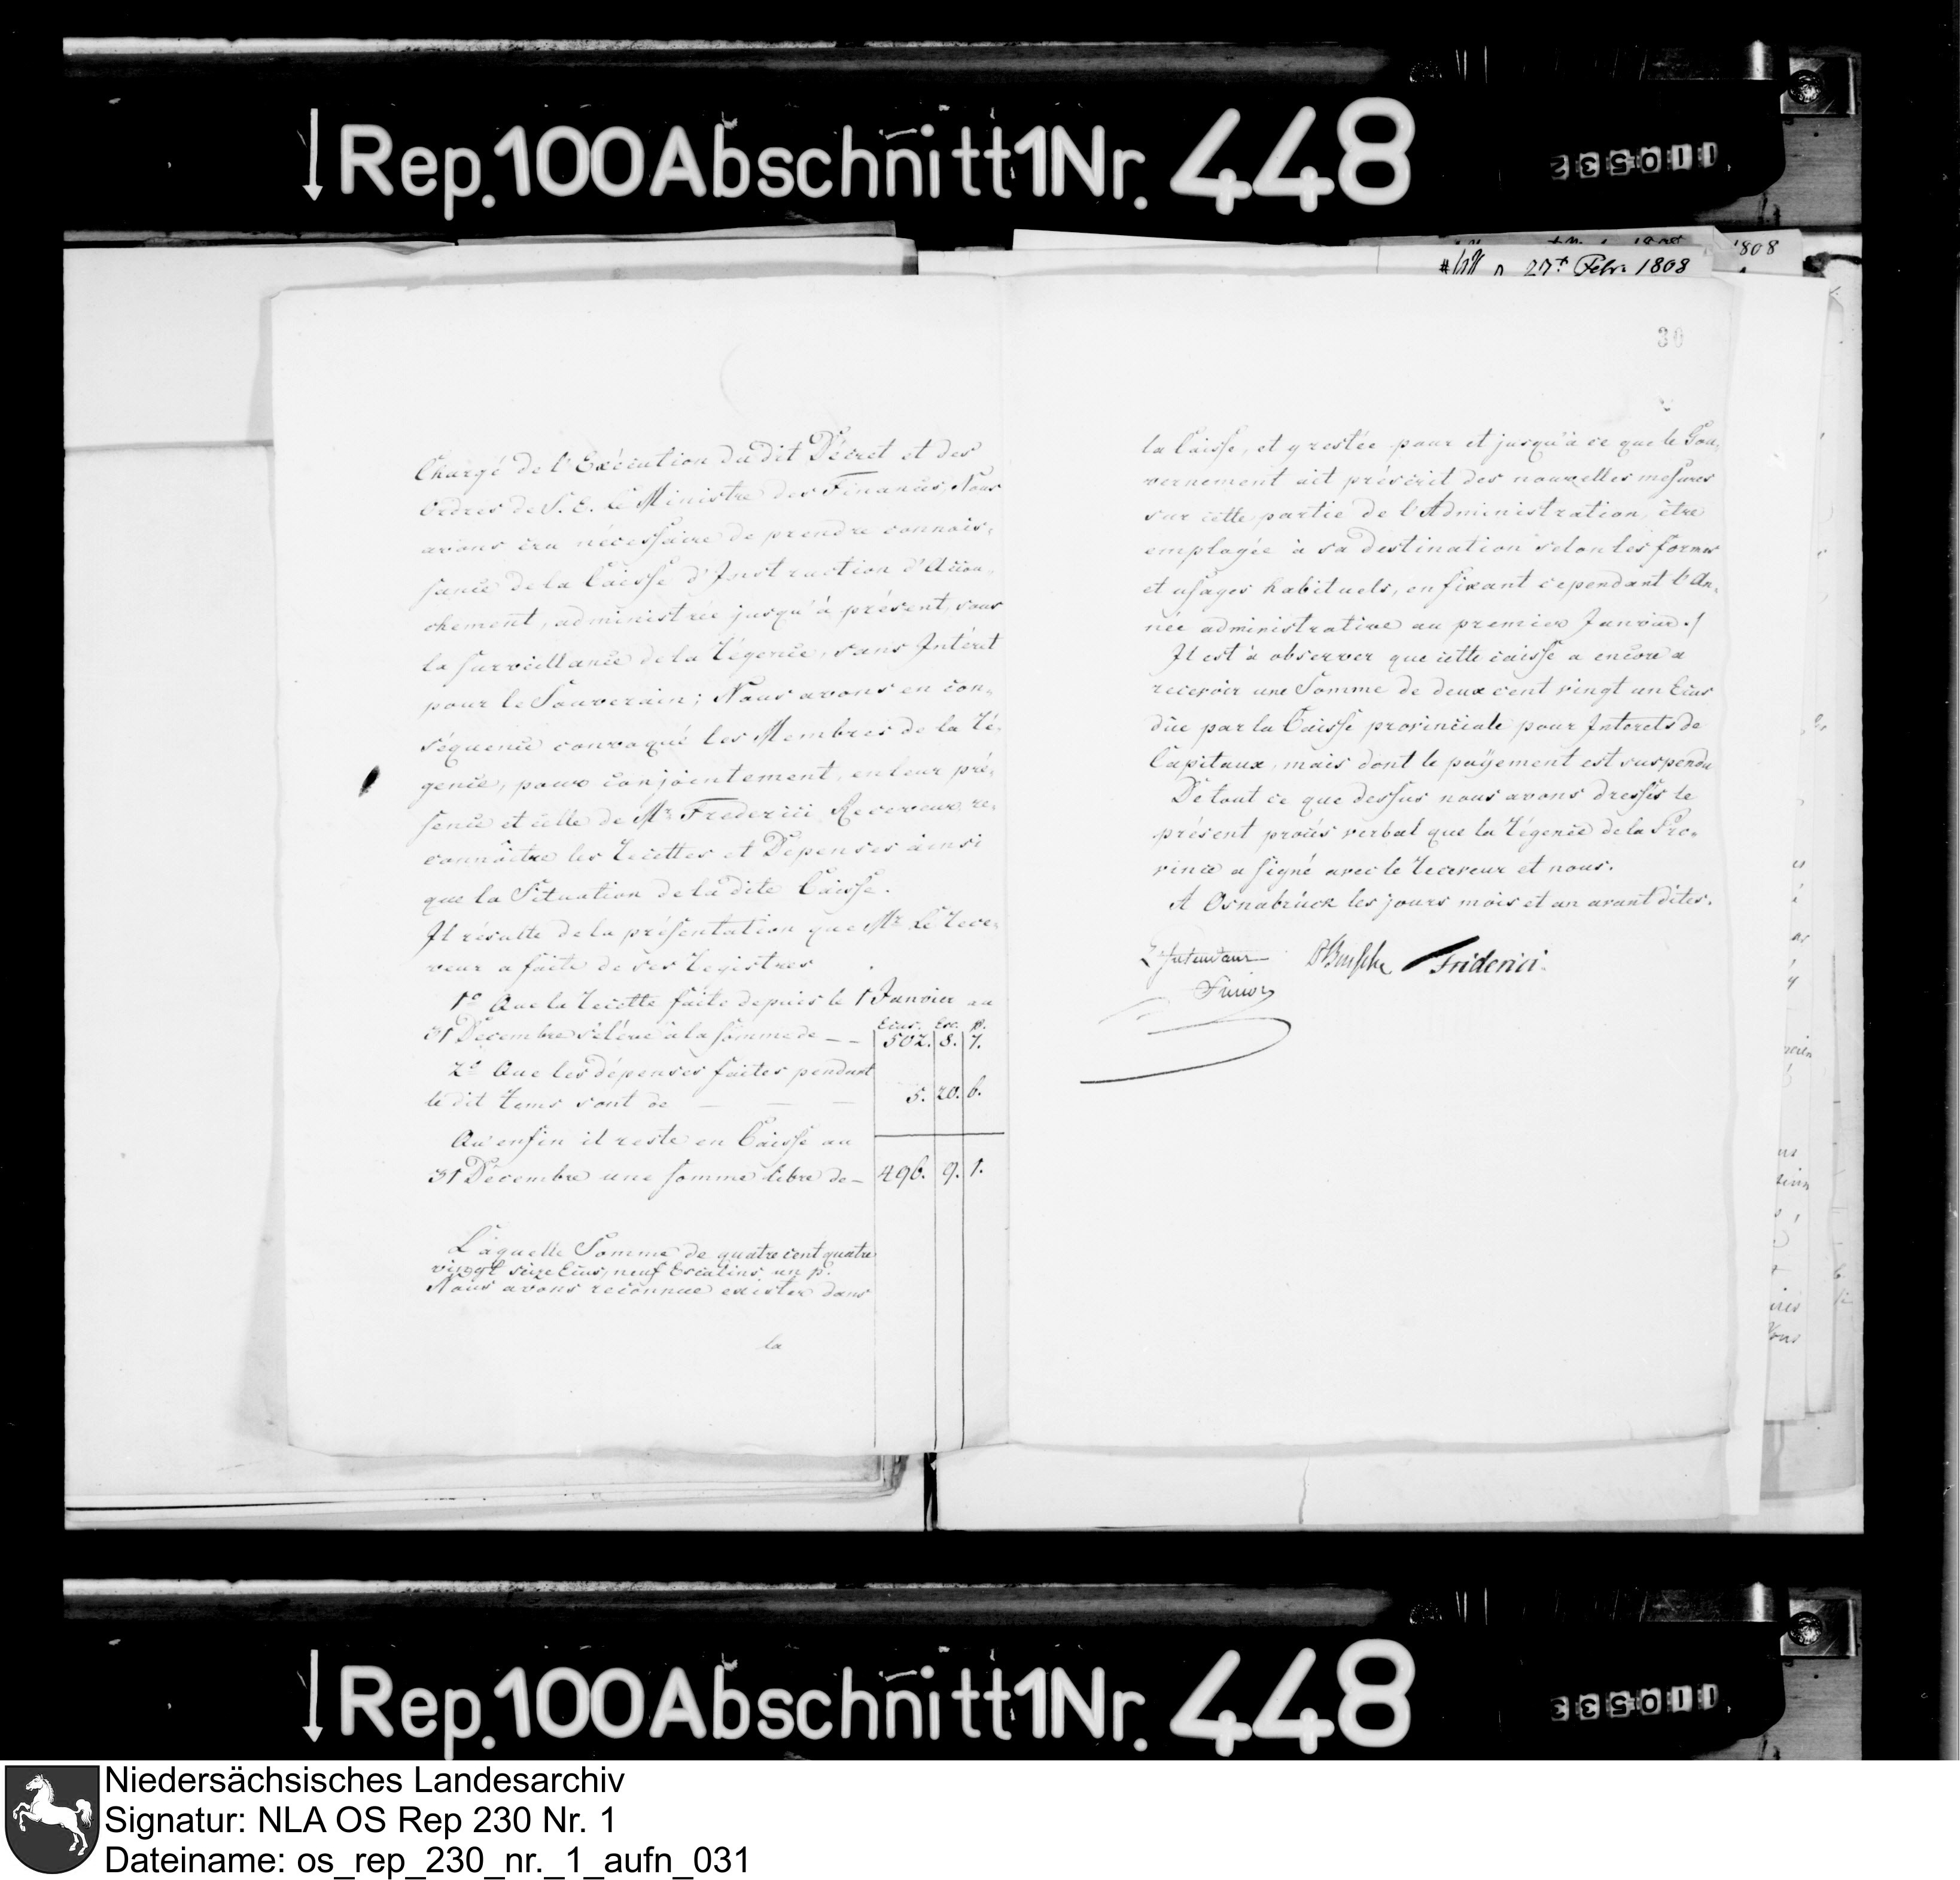 ↓Rep.100Abschnitt1Nr. 448
110532
1808
27t Febr. 1808
30
Chargé de l'Exécution du dit Décret et des
Ordres de S. E. le Ministre des Finances, Nous
avons cru nécessaire de prendre connois-
sance de la Caisse d'Instruction d'Accou-
chement, administrée jusqu'à présent, sous
la surveillance de la Régence, sans Intérêt
pour le Souverain; Nous avons en con-
séquence convoqué les Membres de la Ré-
gence, pour conjointement, en leur pré-
sence et celle de Mr. Frederici Receveur re-
connôitre les Recettes et Dépenses ainsi
que la Situation de la dite Caisse.
Il résulte de la présentation que Mr. Le Rece-
veur a faite de ses Registres
1º Que la Recette faite depuis le 1 Janvier au
Ecus. Esc. p.
31 Décembre s'élève à la somme de -- 502. 8. 7.
2º Que les dépenses faites pendant
le dit tems sont de — — — 5. 20. 6.
Qu'enfin il reste en Caisse au
31 Décembre une somme libre de - 496. 9. 1.
Laquelle Somme de quatre cent quatre
vingt seize Ecus, neuf Escalins un p.
Nous avons reconnue exister dans
la
la Caisse, et y restée pour et jusqu'à ce que le Gou-
vernement ait préscrit des nouvelles mesures
sur cette partie de l'Administration, être
employée à sa destination selon les formes
et usages habituels, en fixant cependant l'An-
née administrative au premier Janvier./
Il est à observer que cette caisse a encore a
recevoir une Somme de deux cent vingt un Ecus
düe par la Caisse provinciale pour Interets de
Capitaux, mais dont le payement est suspendu
De tout ce que dessus nous avons dressés le
présent procés verbal que la Régence de la Pro-
vince a signé avec le Receveur et nous.
A Osnabrück les jours mois et an avant dites.
L'Intendant
Friderici.
↓Rep.100Abschnitt1Nr. 448
110533
Niedersächsisches Landesarchiv
Signatur: NLA OS Rep 230 Nr. 1
Dateiname: os_rep_230_nr._1_aufn_031